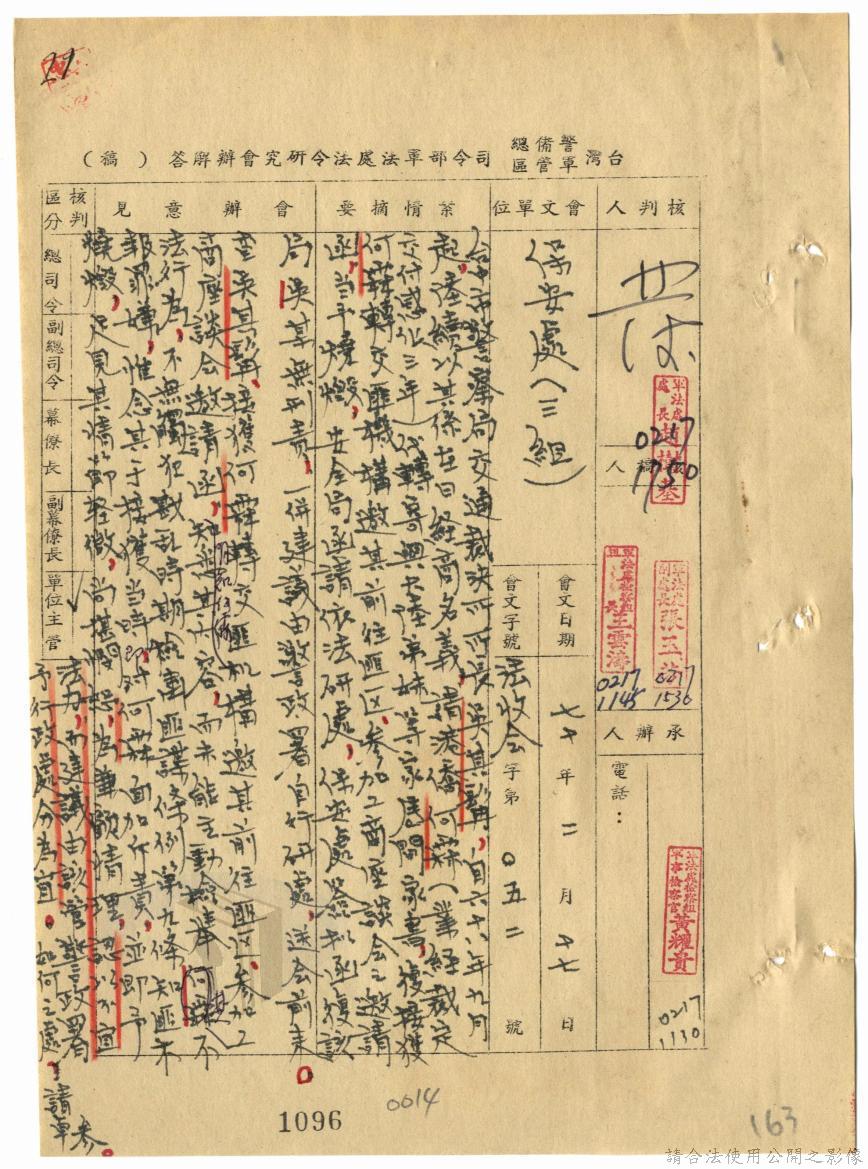 21
台灣警備總司令部軍管區軍法處法令研究會辦解答（稿）
核判人
軍法處處長
0217
1750
核稿人
軍法處副處長張玉
0217
1530
軍法處檢察組組長王雲濤
0217
1145
承辦人
電話：
軍法處檢察組軍事檢察官黃耀貴
0217
1130
會文單位
保安處（三組）
會文日期
七十年二月十七日
會文字號
法收會字第〇五二號
案情摘要
台中市警察局交通裁決所所長吳其 自六十八年九月
起，陸續以其係在日經商名義，請港僑何霖（業經裁定
交付感化三年）代轉寄與大陸弟妹等家屬間家書，復接獲
何霖轉交匪機構邀其前往匪區，參加工商座談會之邀請
函，當予燒燬，安全局函請依法研處，保安處簽擬函復該
局吳某無刑責，一併建議由警政署自行研處，送會前來。
會辦意見
查吳其 接獲何霖轉交匪機構邀其前往匪區，參加工
商座談會邀請函，知悉其內容，而未能主動檢舉何霖不
法行為，不無觸犯戡亂時期檢肅匪諜條例第九條知匪不
報罪嫌，惟念其于接獲當時，即對何霖面加斥責，並即予
燒燬，足見其情節輕微，尚堪憫恕，為兼顧情理，認以不宜
法辦，而建議由該管警政署
予行政處分為宜。如何之處，請卓參。
核判區分
總司令
副總司令
幕僚長
副幕僚長
單位主管
✓
1096
0014
163
請合法使用公開之影像